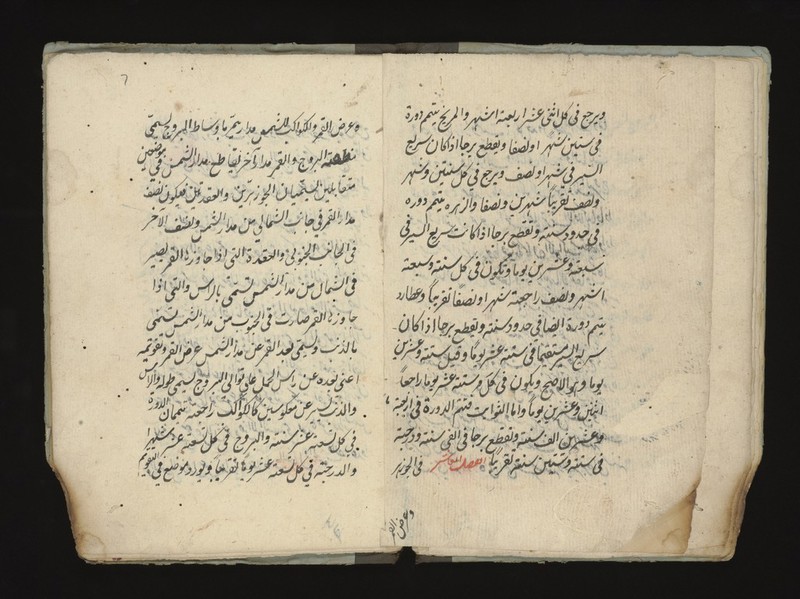 ويرجع في كل اثني عشر اربعة اشهر والمريخ يتم دورة
في سنين شهرا ونصفا ويقطع برجا اذا كان سريع
السير في شهر ونصف ويرجع في كل سنتين وشهر
ونصف تقريبا شهرين ونصفا والزهرة يتم دورة
في حدود سنة وتقطع برجا اذا كانت سريع السير في
سبعة وعشرين يوما وتكون في كل سنة وسبعة
اشهر ونصف راجعة شهرا ونصفا تقريبا وعطارد
يتم دورة ايضا في حدود سنة ويقطع برجا اذا كان
سريع السير مستقيما في ستة عشر يوما وقيل ستة وعشرين
يوما وهو الاصح ويكون في كل وستة عشر يوما راجعا
اثنين وعشرين يوما واما الثوابت فيتم الدورة في اربعة
وعشرين الف سنة وتقطع برجا في الفي سنة ودرجة
في ستة وستين سنة تقريبا الفصل العاشر في الجوزهر
وعرض القمر
٧
وعرض القمر ولكواكب الشمس مدار يمر باوساط البروج يسمى
منطقة البروج والقمر مدار آخر يقاطع مدار الشمس في موضعين
متقابلين يسميان الجوزهرين والعقدتين فيكون نصف
مدار القمر في جانب الشمالي من مدار الشمس ونصف الآخر
في الجانب الجنوبي والعقدة التي اذا جاوزها القمر يصير
في الشمال من مدار الشمس تسمى بالراس والتي اذا
جاوزها القمر صارت في الجنوب من مدار الشمس تسمى
بالذنب ويسمى بعد القمر عن مدار الشمس عرض القمر وتقويمه
اعني بعده عن راس الحمل على توالي البروج يسمى طوله والراس
والذنب يسيران معكوسين كالكواكب راجعة يتمان الدورة
في كل تسعة عشر سنة والبروج في كل تسعة عشر شهرا
والدرجة في كل تسعة عشر يوما تقريبا ويورد موضع في التقويم